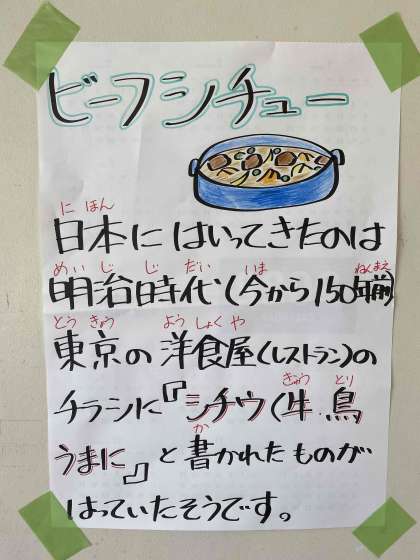 ビーフシチュー
にほん
日本にはいってきたのは
めいじじだい いま ねんまえ
明治時代(今から150年前)
とうきょう ようしょくや
東京の洋食屋(レストラン)の
ぎゅう とり
チラシに『シチウ(牛.鳥
か
うまに』と書かれたものが
はっていたそうです。